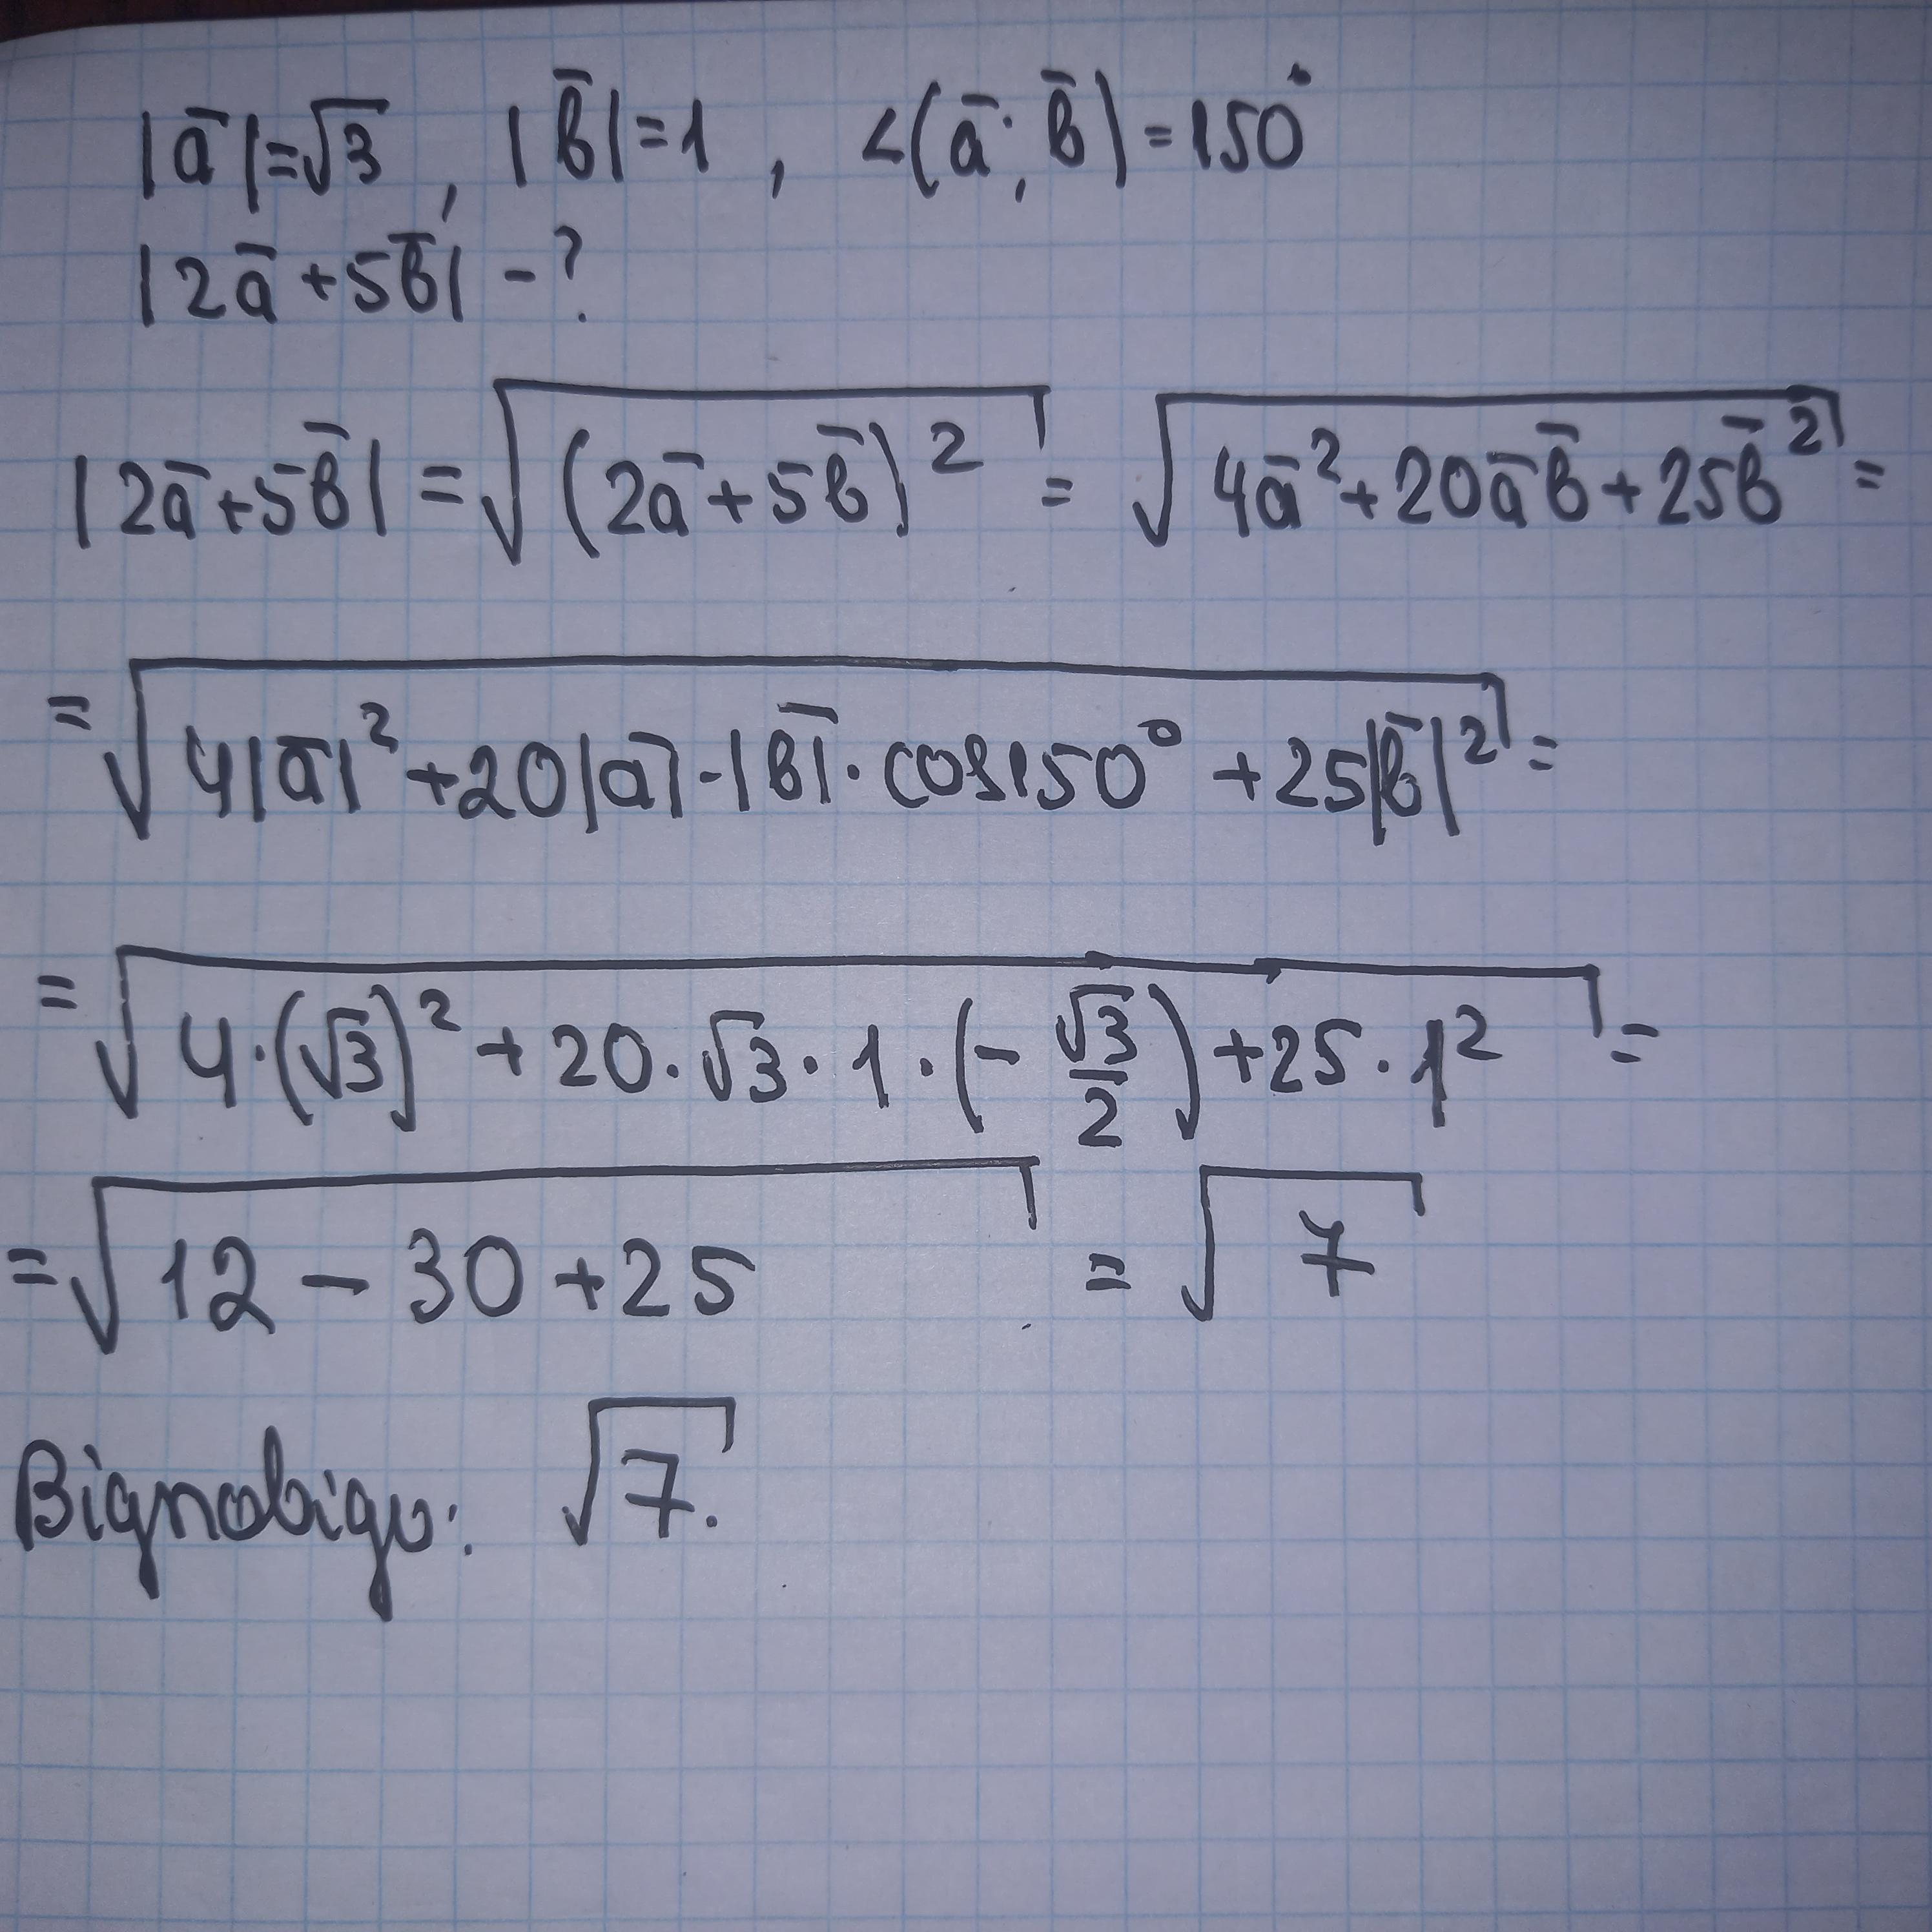 |a̅|=√3, |b̅|=1, <(a̅; b̅)=150°
|2a̅+5b̅| -?
|2a̅+5b̅| = √(2a̅+5b̅)² = √4a̅²+20a̅b̅+25b̅² =
= √4|a̅|²+20|a̅|·|b̅|·cos150°+25|b̅|² =
= √4·(√3)²+20·√3·1·(-√3/2)+25·1² =
= √12-30+25 = √7
Відповідь: √7.